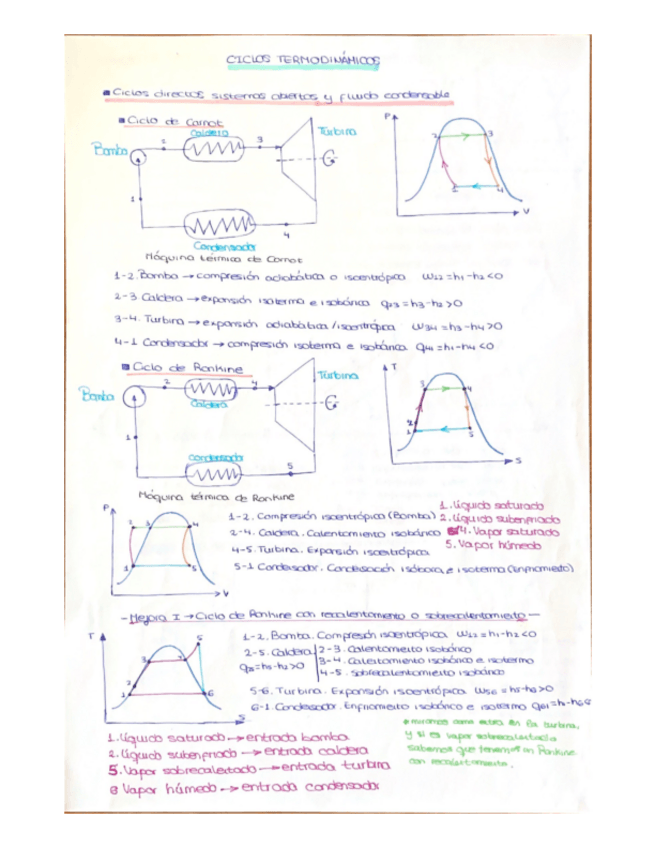 CICLOS TERMODINÁMICOS
Ciclos directos sistemas abiertos y fluido condensable
Ciclo de Carnot
Caldera
Turbina
Bomba
2
3
1
4
Condensador
Máquina térmica de Carnot
P
2
3
1
4
V
1-2. Bomba → compresión adiabática o isoentrópica w12 = h1-h2 <0
2-3. Caldera → expansión isoterma e isobárica q23 = h3-h2 >0
3-4. Turbina → expansión adiabática/isoentrópica w34 = h3-h4 >0
4-1 Condensador → compresión isoterma e isobárica q41 = h1-h4 <0
Ciclo de Rankine
Turbina
Bomba
2
4
Caldera
1
Condensador
5
Máquina térmica de Rankine
T
3
4
2
1
5
S
P
2
3
4
1
5
V
1-2. Compresión isoentrópica (Bomba)
2-4. Caldera. Calentamiento isobárico
4-5. Turbina. Expansión isoentrópica
5-1 Condensador. Condensación isóbara e isoterma (Enfriamiento)
1. Líquido saturado
2. Líquido subenfriado
4. Vapor saturado
5. Vapor húmedo
- Mejora I → Ciclo de Rankine con recalentamiento o sobrecalentamiento -
T
5
3
2
1
6
S
1-2. Bomba. Compresión isoentrópica w12 = h1-h2 <0
2-5. Caldera
q25 = h5-h2 >0
2-3. Calentamiento isobárico
3-4. Calentamiento isobárico e isotermo
4-5. Sobrecalentamiento isobárico
5-6. Turbina. Expansión isoentrópica w56 = h5-h6 >0
6-1. Condensador. Enfriamiento isobárico e isotermo q61 = h1-h6
1. Líquido saturado → entrada bomba
2. Líquido subenfriado → entrada caldera
5. Vapor sobrecalentado → entrada turbina
6 Vapor húmedo → entrada condensador
* miramos como entra en la turbina,
y si es vapor sobrecalentado
sabemos que tenemos un Rankine
con recalentamiento.